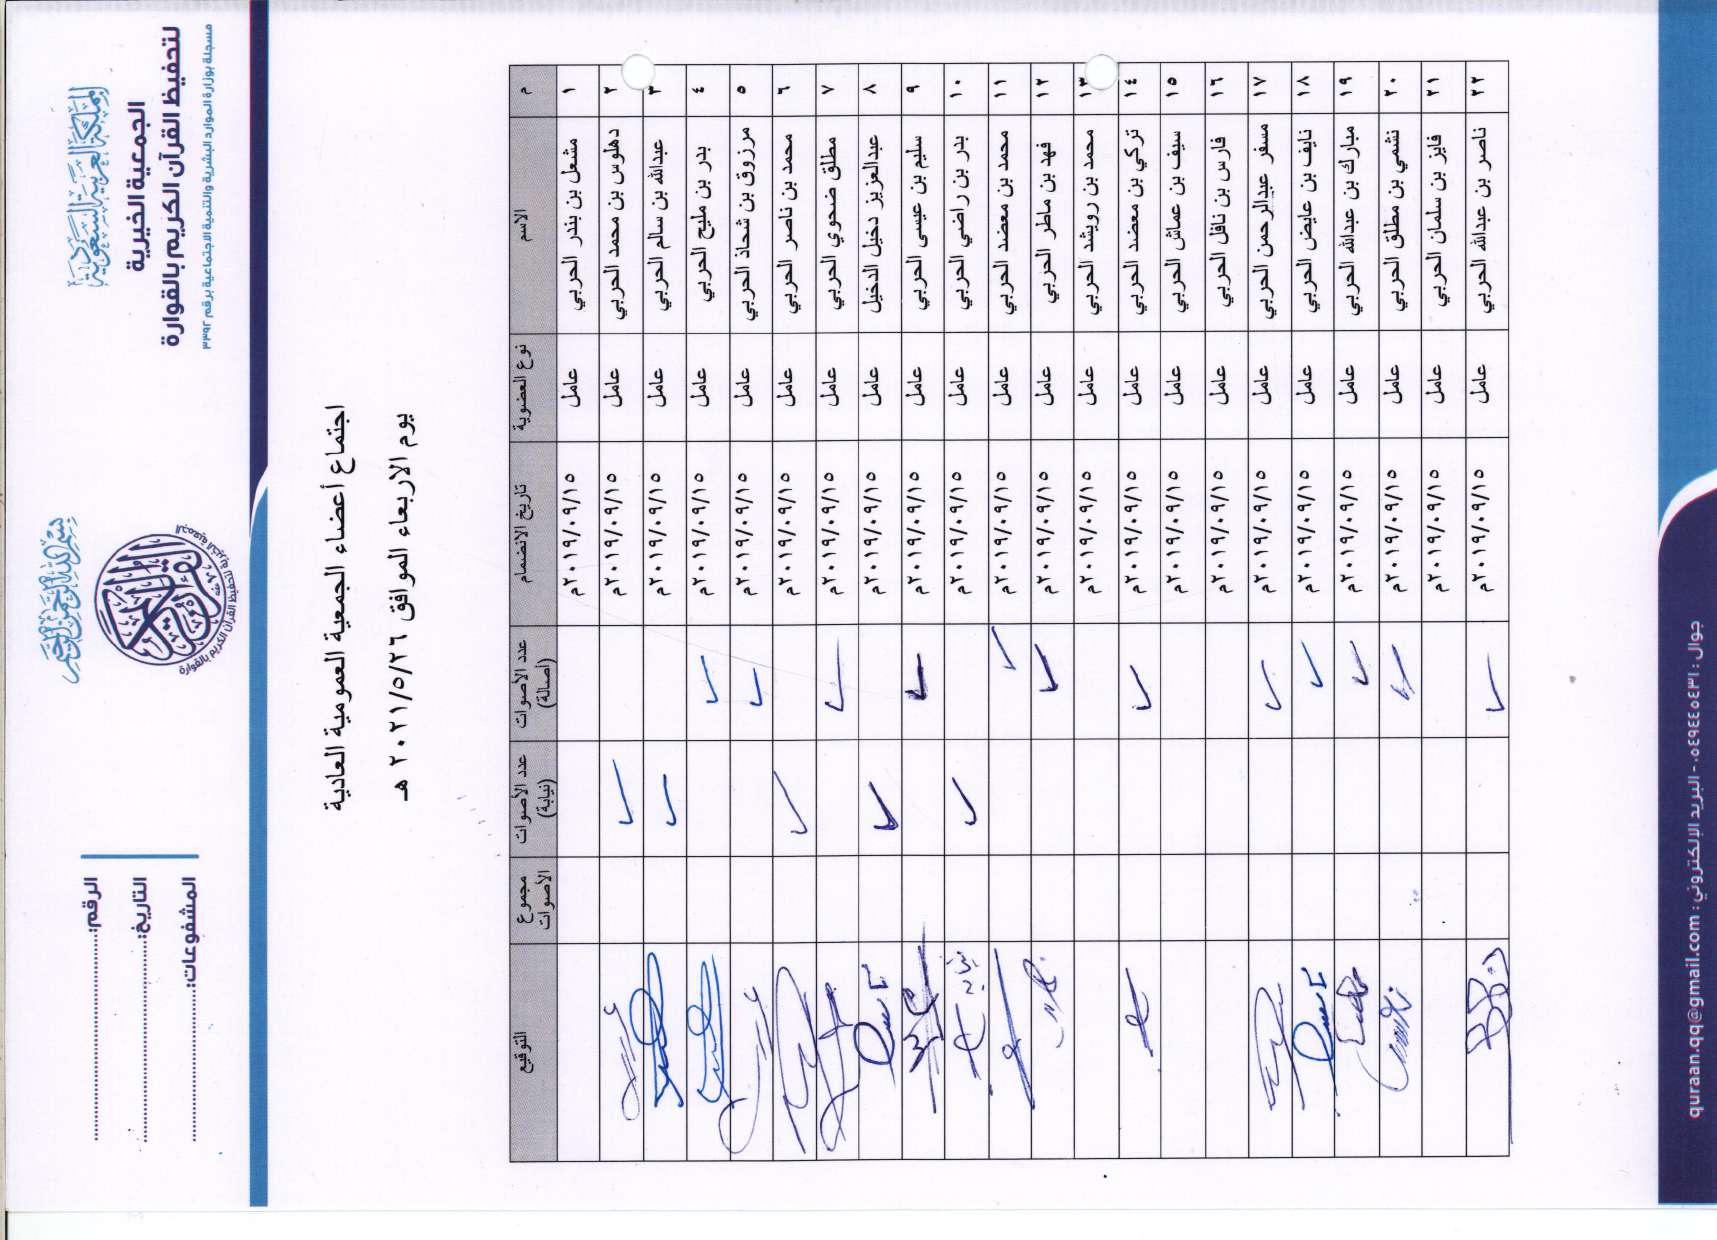 المملكة العربية السعودية
الجمعية الخيرية
لتحفيظ القرآن الكريم بالقوارة
مسجلة بوزارة الموارد البشرية والتنمية الاجتماعية برقم ٣٣٩٢
بسم الله الرحمن الرحيم
القرآن الكريم
الرقم:
التاريخ:
المشفوعات:
اجتماع أعضاء الجمعية العمومية العادية
يوم الاربعاء الموافق ٢٠٢١/٥/٢٦ هـ
م الاسم نوع العضوية تاريخ الانضمام عدد الأصوات (أصالة) عدد الأصوات (نيابة) مجموع الأصوات التوقيع
١ مشعل بن بندر الحربي عامل ٢٠١٩/٠٩/١٥م
٢ دهلوس بن محمد الحربي عامل ٢٠١٩/٠٩/١٥م ✓
٣ عبدالله بن سالم الحربي عامل ٢٠١٩/٠٩/١٥م ✓
٤ بدر بن مليح الحربي عامل ٢٠١٩/٠٩/١٥م ✓
٥ مرزوق بن شحاذ الحربي عامل ٢٠١٩/٠٩/١٥م ✓
٦ محمد بن ناصر الحربي عامل ٢٠١٩/٠٩/١٥م ✓
٧ مطلق ضحوي الحربي عامل ٢٠١٩/٠٩/١٥م ✓
٨ عبدالعزيز دخيل الدخيل عامل ٢٠١٩/٠٩/١٥م ✓
٩ سليم بن عيسى الحربي عامل ٢٠١٩/٠٩/١٥م ✓
١٠ بدر بن راضي الحربي عامل ٢٠١٩/٠٩/١٥م ✓ نيابه
١١ محمد بن معضد الحربي عامل ٢٠١٩/٠٩/١٥م ✓
١٢ فهد بن ماطر الحربي عامل ٢٠١٩/٠٩/١٥م ✓
١٣ محمد بن رويشد الحربي عامل ٢٠١٩/٠٩/١٥م
١٤ تركي بن معضد الحربي عامل ٢٠١٩/٠٩/١٥م ✓
١٥ سيف بن عماش الحربي عامل ٢٠١٩/٠٩/١٥م
١٦ فارس بن نافل الحربي عامل ٢٠١٩/٠٩/١٥م
١٧ مسفر عبدالرحمن الحربي عامل ٢٠١٩/٠٩/١٥م ✓
١٨ نايف بن عايض الحربي عامل ٢٠١٩/٠٩/١٥م ✓
١٩ مبارك بن عبدالله الحربي عامل ٢٠١٩/٠٩/١٥م ✓
٢٠ نشمي بن مطلق الحربي عامل ٢٠١٩/٠٩/١٥م ✓
٢١ فايز بن سلمان الحربي عامل ٢٠١٩/٠٩/١٥م
٢٢ ناصر بن عبدالله الحربي عامل ٢٠١٩/٠٩/١٥م ✓
جوال : ٠٥٤٩٤٤٥٤٣١ - البريد الإلكتروني : quraan.qq@gmail.com